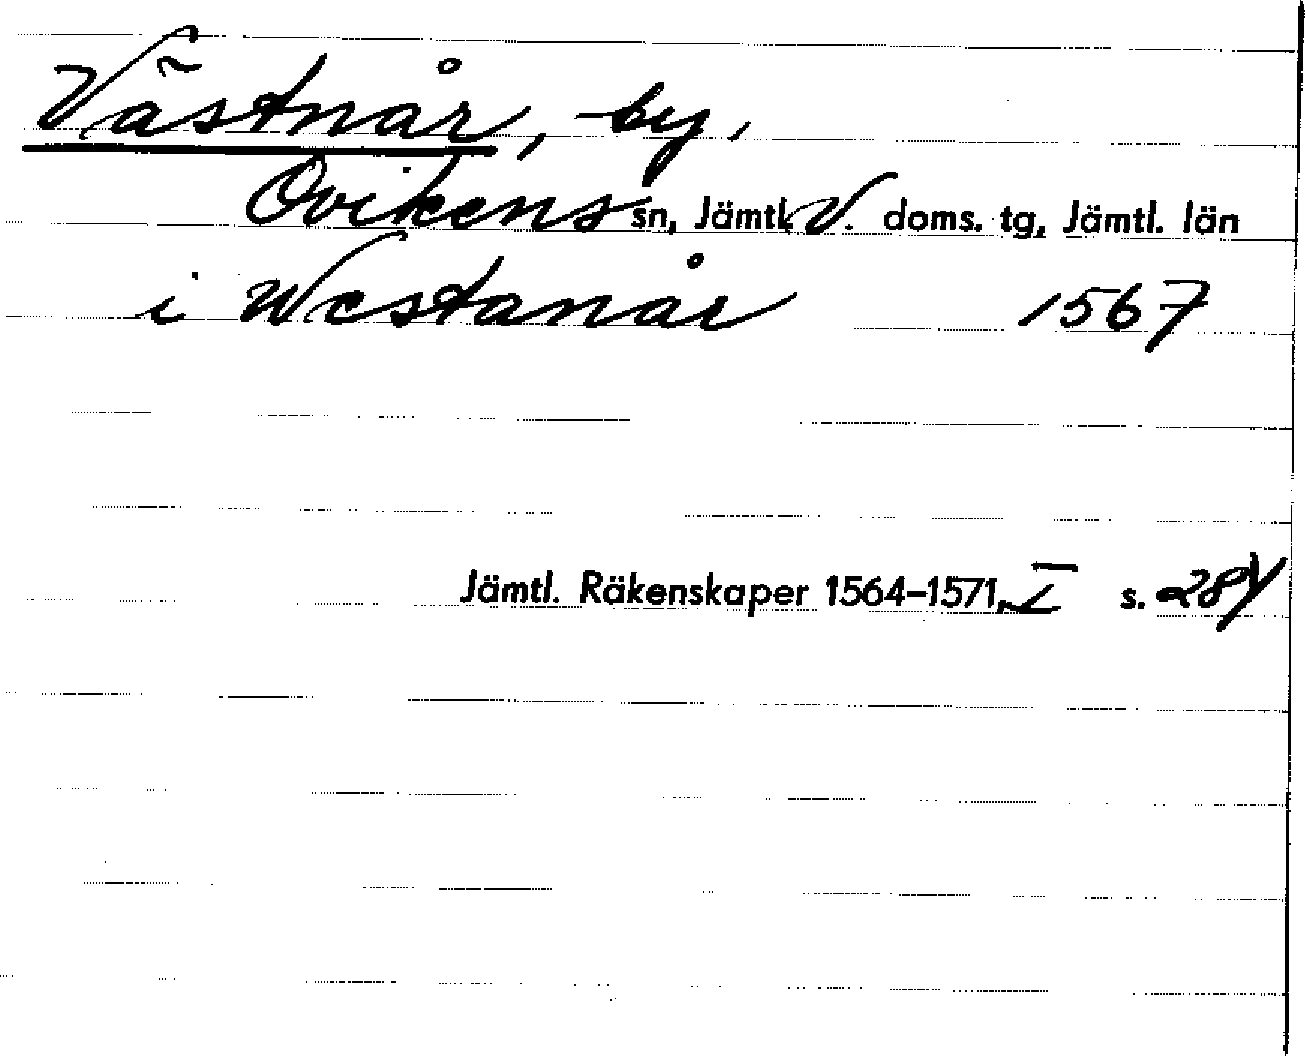 Västnår, by,
Ovikens sn, Jämtl. V. doms. tg, Jämtl. län
i Westanår 1567
Jämtl. Räkenskaper 1564–1571, I s. 284